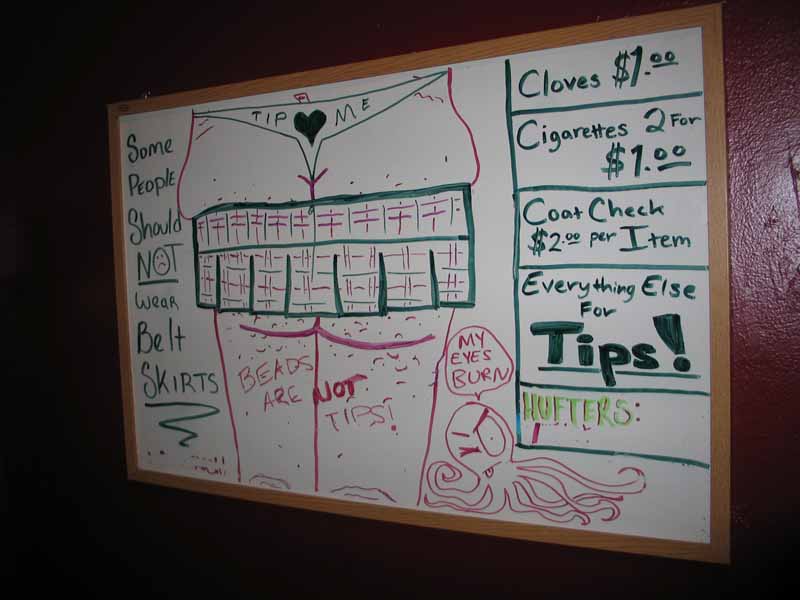 Some
People
Should
NOT
Wear
Belt
SKIRTS
TIP ME
BEADS
ARE NOT
TIPS!
MY
EYES
BURN
Cloves $1.00
Cigarettes 2 For
$1.00
Coat Check
$2.00 per Item
Everything Else
For
Tips!
HUFTERS: